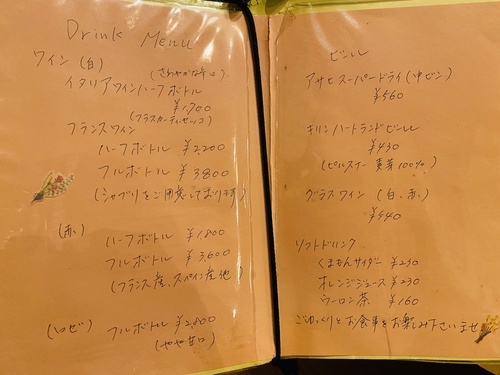 Drink Menu
ワイン (白)
(さわやかな辛口)
イタリアワインハーフボトル
¥1,700
フランスワイン
ハーフボトル ¥2,200
フルボトル ¥3800
(シャブリをご用意しております)
(赤)
ハーフボトル ¥1,800
フルボトル ¥3,600
(フランス産、スペイン産他)
(ロゼ) フルボトル ¥2,800
(やや甘口)
ビール
アサヒスーパードライ(中ビン)
¥560
キリンハートランドビール
¥430
(ピルスナー 麦芽100%)
グラスワイン (白、赤)
¥540
ソフトドリンク
くまもんサイダー ¥230
オレンジジュース ¥230
ウーロン茶 ¥160
ごゆっくりとお食事をお楽しみ下さいませ